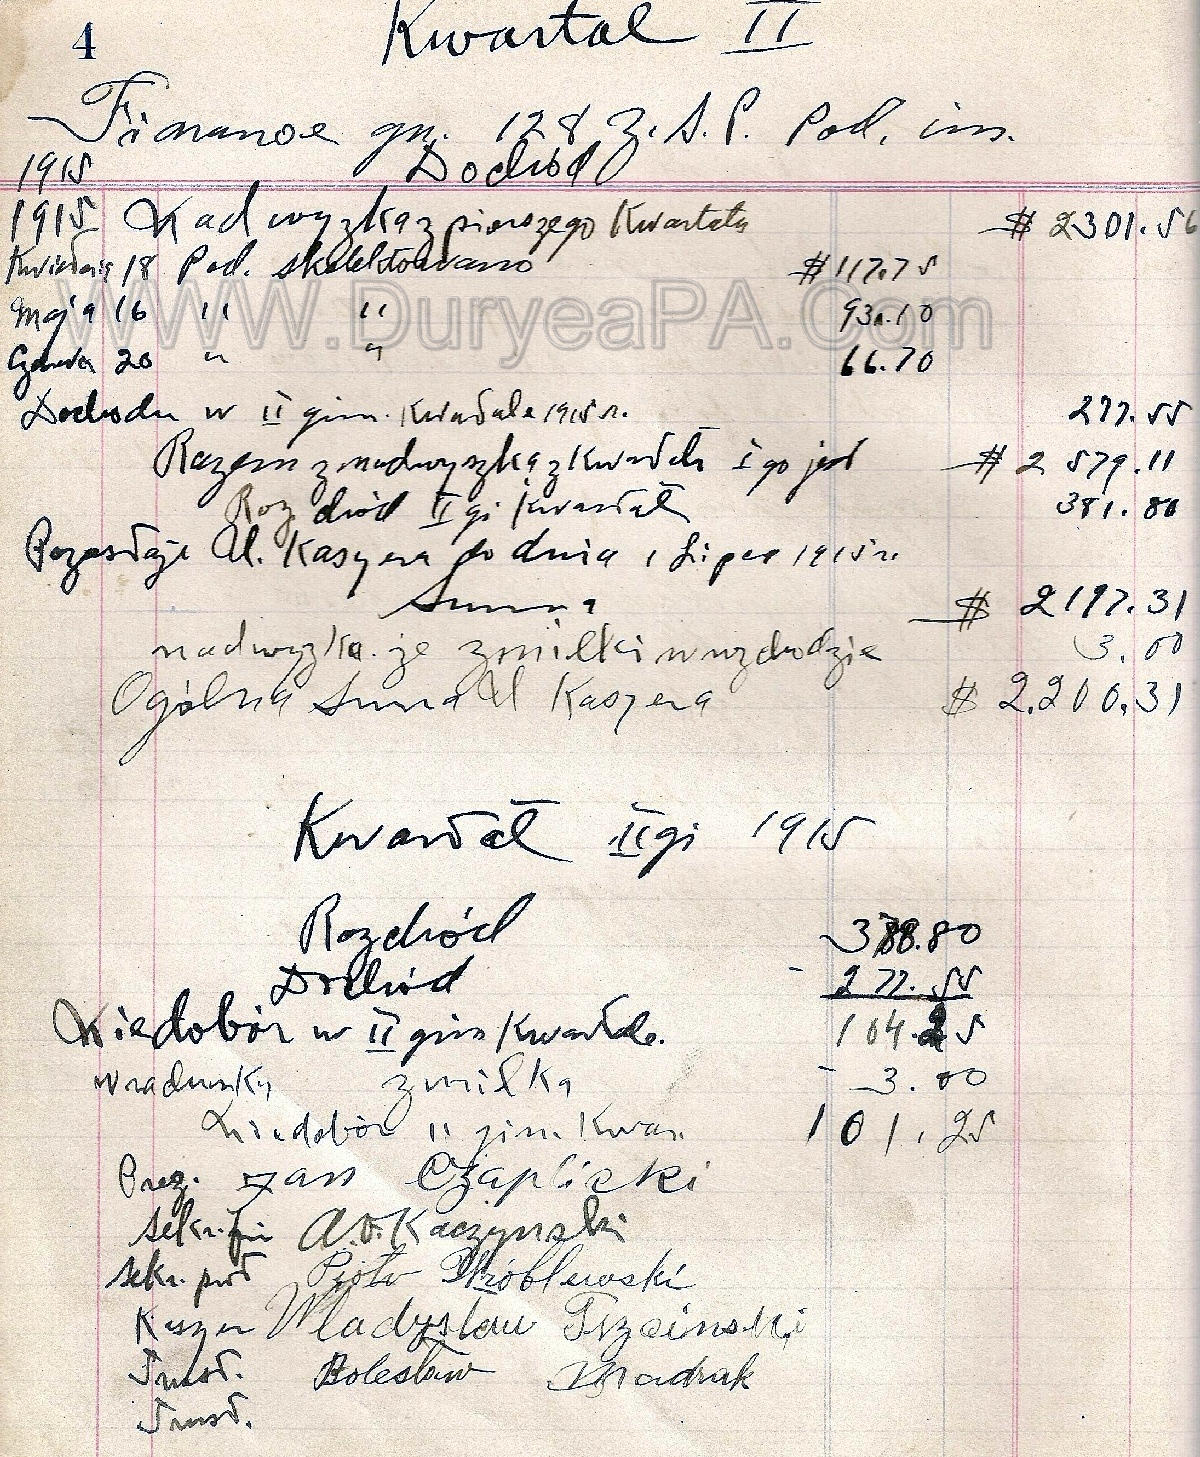 4 Kwartal II
Finanse gr. 128 Z. S. P. Pod. im.
1915 Dochód
1915 Nadwyzka z pierszego Kwartatu $ 2301.56
Kwietnia 18 Pod. skolektowano $ 117.75
Maja 16 " " 93.10
Czerwca 20 " " 66.70
Dochodu w II gim. Kwartale 1915 r. 277.55
Razem z nadwyszką z Kwartału I go jest $ 2 579.11
Rozchód IIgi Kwartał 381.80
Pozostaje U. Kasyera do dnia 1 Lipca 1915 r.
Suma $ 2197.31
nadwyzka ze zmiłki w rozchodzie 3.00
Ogólna Suma U Kasyera $ 2.200.31
Kwartał IIgi 1915
Rozchód 388.80
Dochód - 277.55
Niedobór w II gim Kwartale. 104.25
w rachunku zmilka - 3.00
Niedobór II gim. Kwar. 101.25
Prez. Jan Czaplicki
Sekr. fin A. W. Kaczynski
Sekr. prot Piotr Wróblewski
Kasyer Wladyslaw Trzcinski
Trust. Bolesław Madrak
Trust.
WWW.DuryeaPA.Com